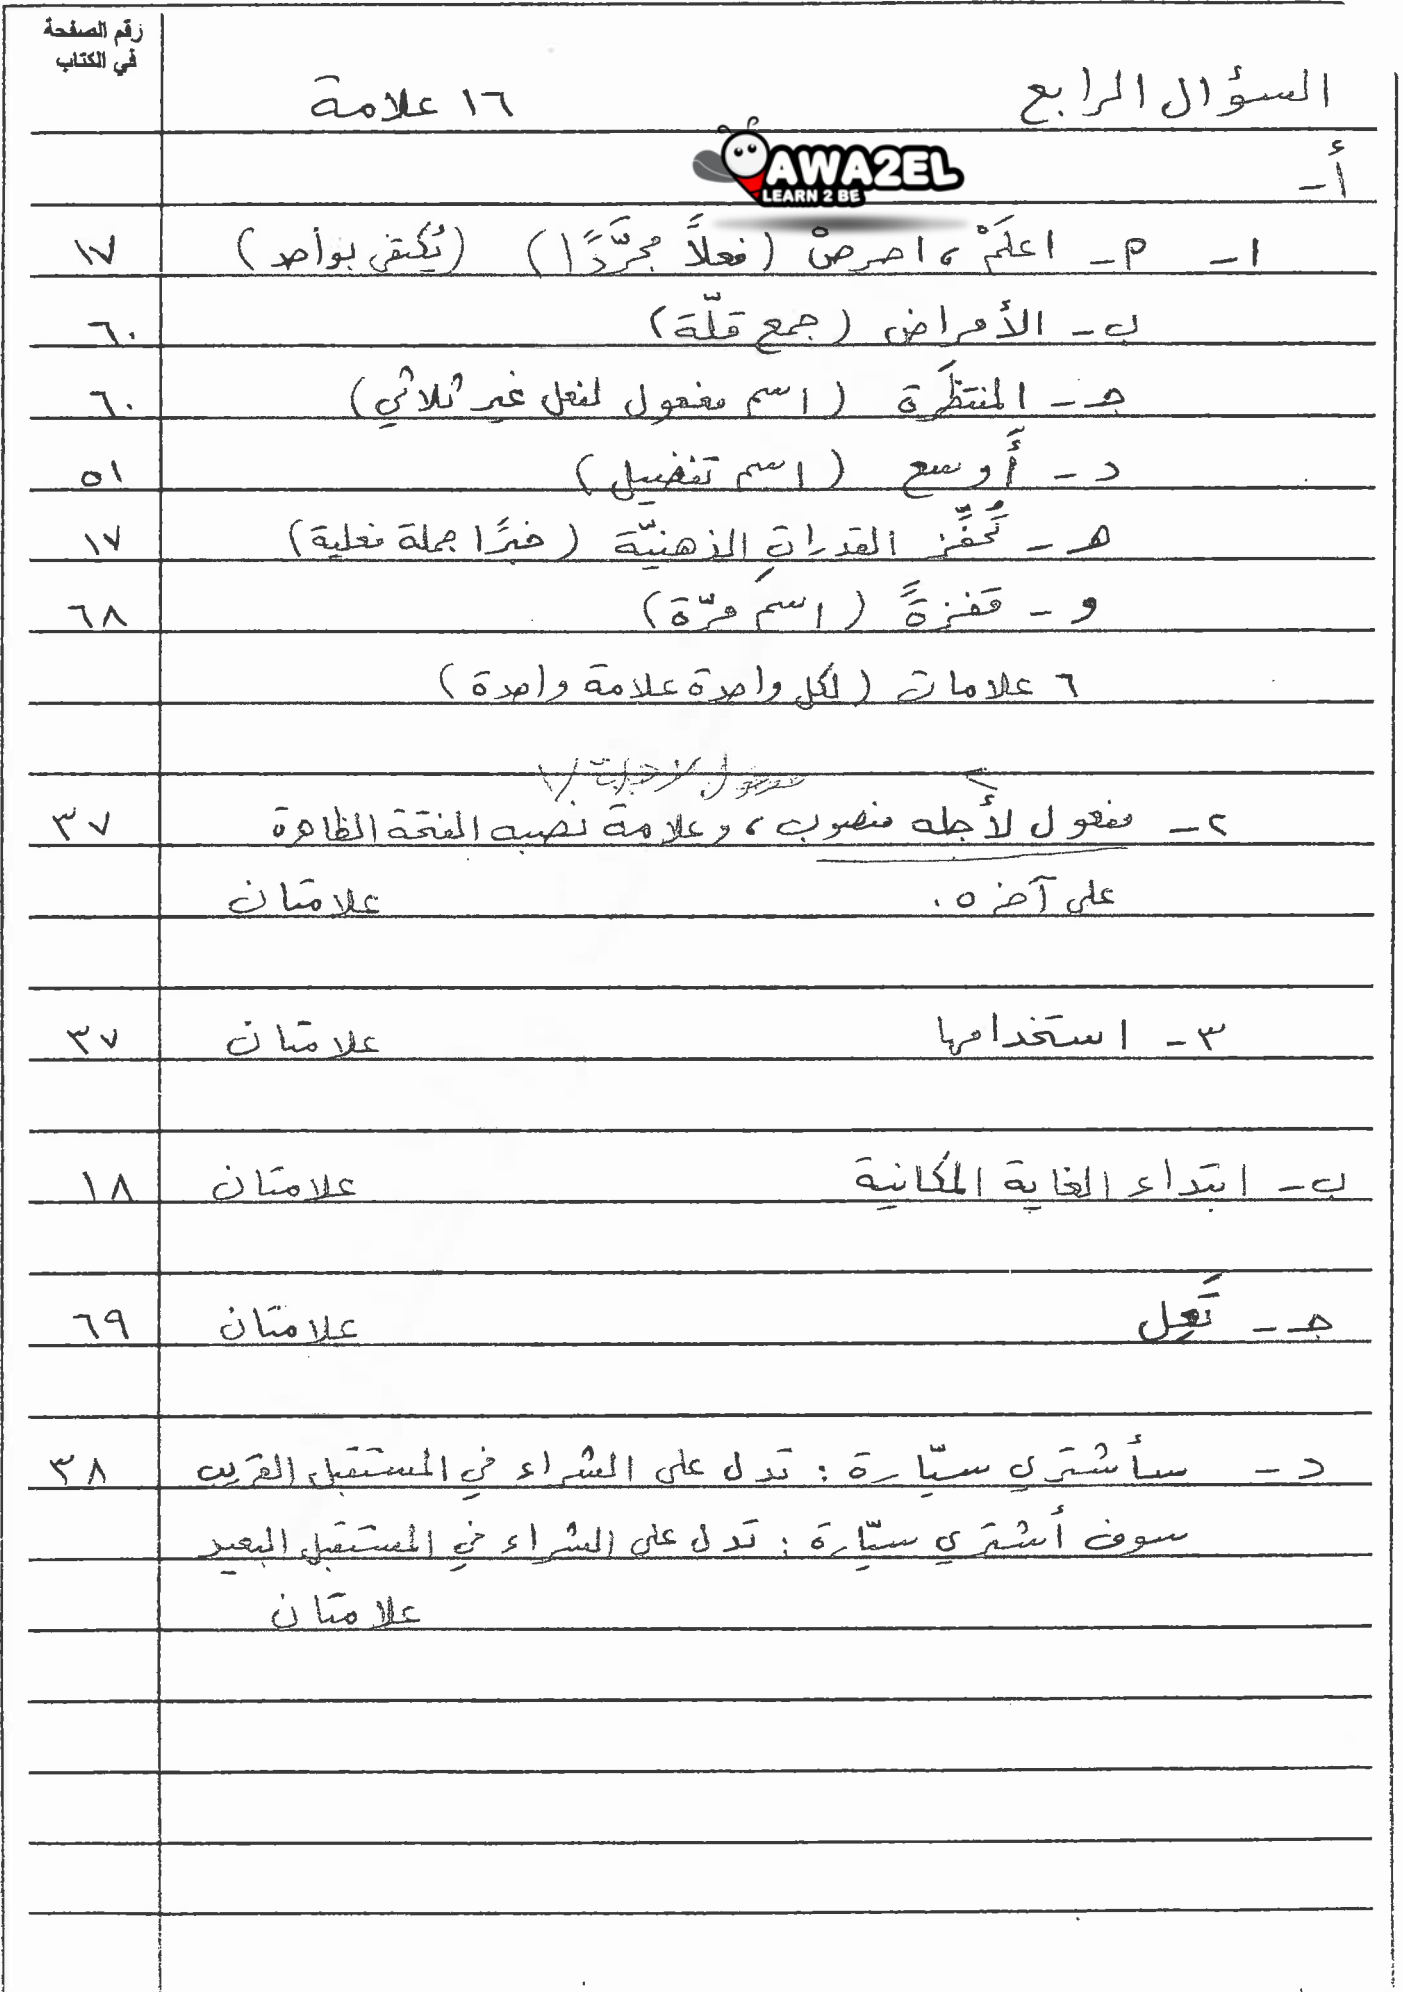 رقم الصفحة
في الكتاب
السؤال الرابع ١٦ علامة
AWA2EL
LEARN 2 BE
أ-
١- م- اعلَمْ، احرصْ (فعلاً مجرَّدًا) (يُكتفى بواحد) ١٧
ب- الأمراض (جمع قلّة) ٦٠
جـ- المنتظَرة (اسم مفعول لفعل غير ثلاثي) ٦٠
د- أَوسع (اسم تفضيل) ٥١
هـ- تُحفِّز القدراتِ الذهنيّة (خبرًا جملة فعلية) ١٧
و- قفزةً (اسمَ مرّة) ٦٨
٦ علامات (لكل واحدة علامة واحدة)
٢- مفعول لأجله منصوب، وعلامة نصبه الفتحة الظاهرة ٣٧
على آخره. علامتان
٣- استخدامها علامتان ٣٧
ب- ابتداء الغاية المكانية علامتان ١٨
جـ- تَعِل علامتان ٦٩
د- سأشتري سيّارة: تدل على الشراء في المستقبل القريب ٣٨
سوف أشتري سيّارة: تدل على الشراء في المستقبل البعيد
علامتان